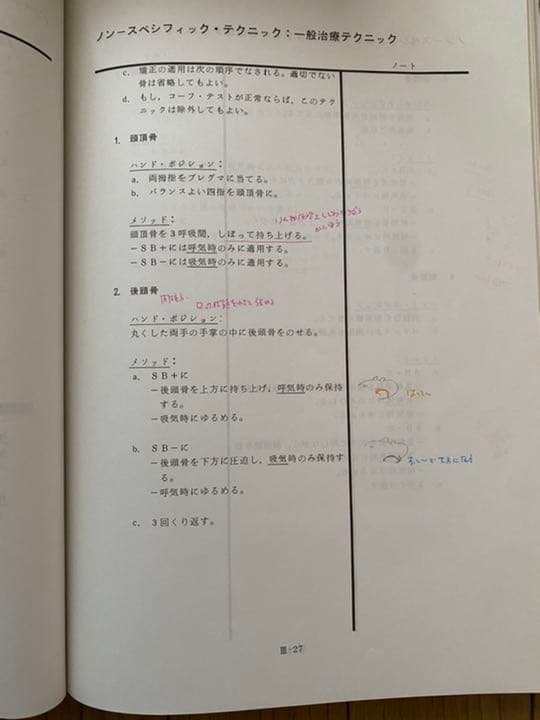 ノンースペシフィック・テクニック：一般治療テクニック
ノート
c. 矯正の適用は次の順序でなされる。適切でない
骨は省略してもよい。
d. もし，コーフ・テストが正常ならば，このテク
ニックは除外してもよい。
1. 頭頂骨
ハンド・ポジション：
a. 両拇指をブレグマに当てる。
b. バランスよい四指を頭頂骨に。
メソッド：
頭頂骨を３呼吸間，しぼって持ち上げる。
－ＳＢ＋には呼気時のみに適用する。
－ＳＢ－には吸気時のみに適用する。
2. 後頭骨
ハンド・ポジション：
丸くした両手の手掌の中に後頭骨をのせる。
メソッド：
a. ＳＢ＋に
－後頭骨を上方に持ち上げ，呼気時のみ保持
する。
－吸気時にゆるめる。
b. ＳＢ－に
－後頭骨を下方に圧迫し，吸気時のみ保持す
る。
－呼気時にゆるめる。
c. ３回くり返す。
Ⅲ-27